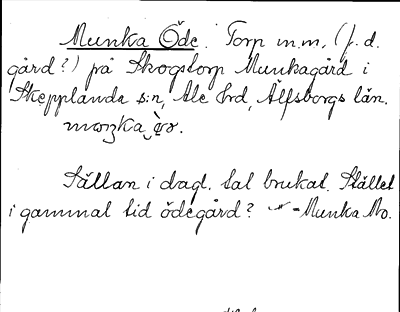 Munka Öde. Torp m.m, (f. d.
gård?) på Skogstorp Munkagård i
Skepplanda s:n, Ale hrd, Älfsborgs län.
Sällan i dagl. tal brukat. Stället
i gammal tid ödegård? = Munka Mo.